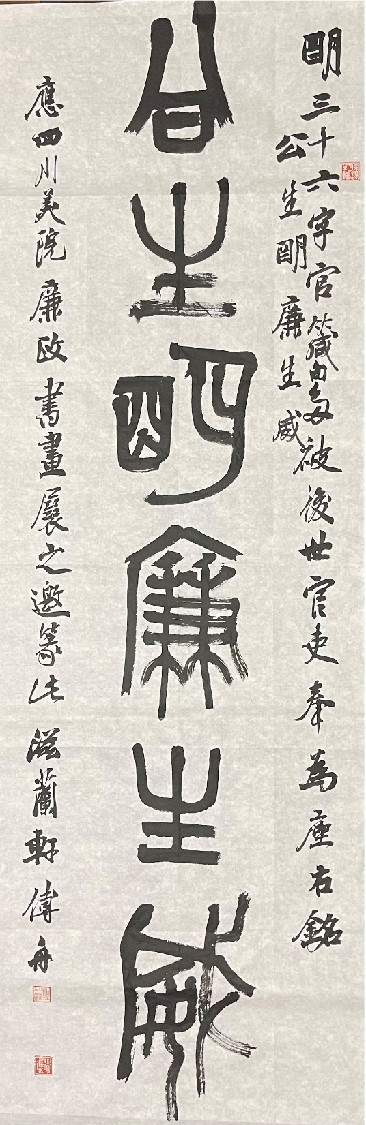 明三十六字官箴多被後世官吏奉為座右銘
公生明廉生威
公生明廉生威
應四川美院廉政書畫展之邀篆此滋蘭軒傅舟